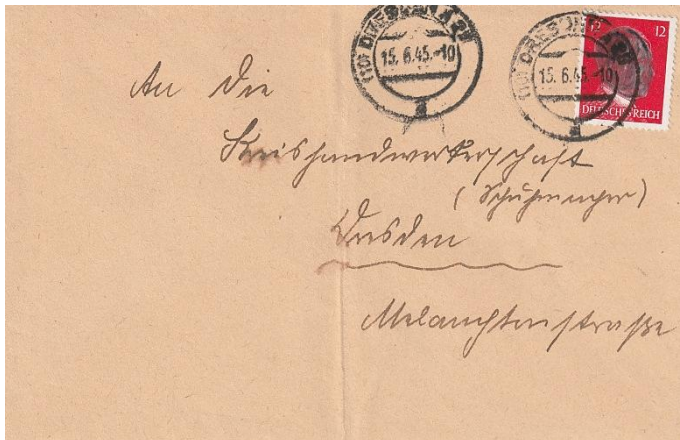 (10) DRESDEN A 24
15.6.45.-10
a
(10) DRESDEN A 24
15.6.45.-10
a
12 12
DEUTSCHES REICH
An die
Kreishandwerkerschaft
(Schuhmacher)
Dresden
Melanchtonstraße